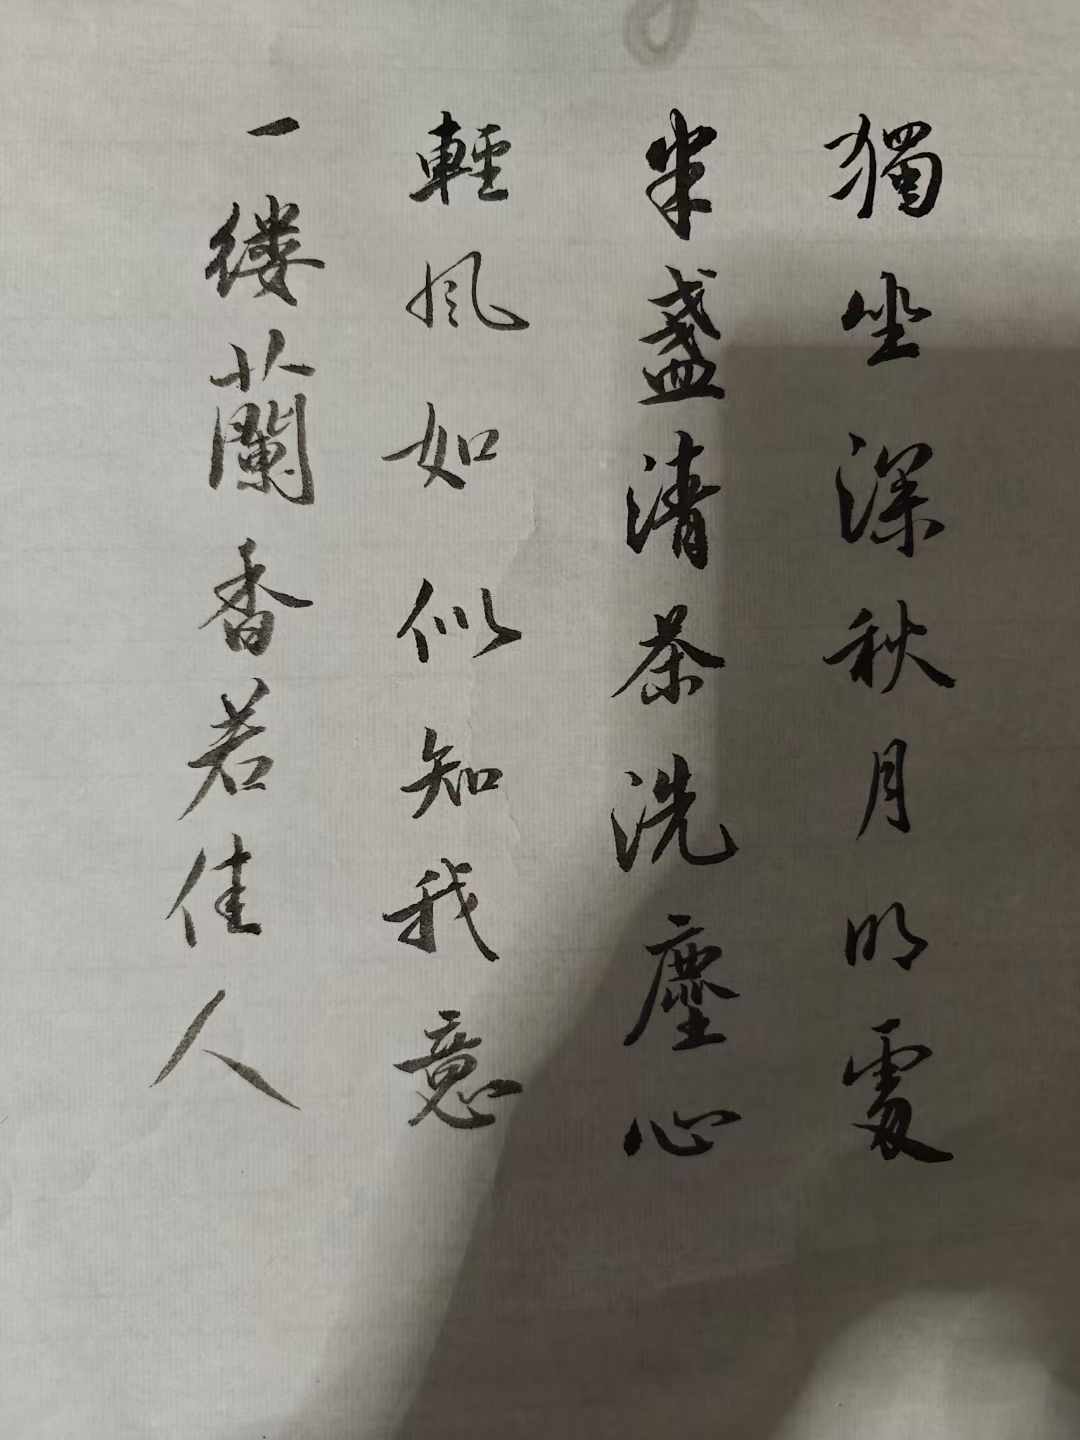 獨坐深秋月明處
半盞清茶洗塵心
輕風如似知我意
一缕蘭香若佳人